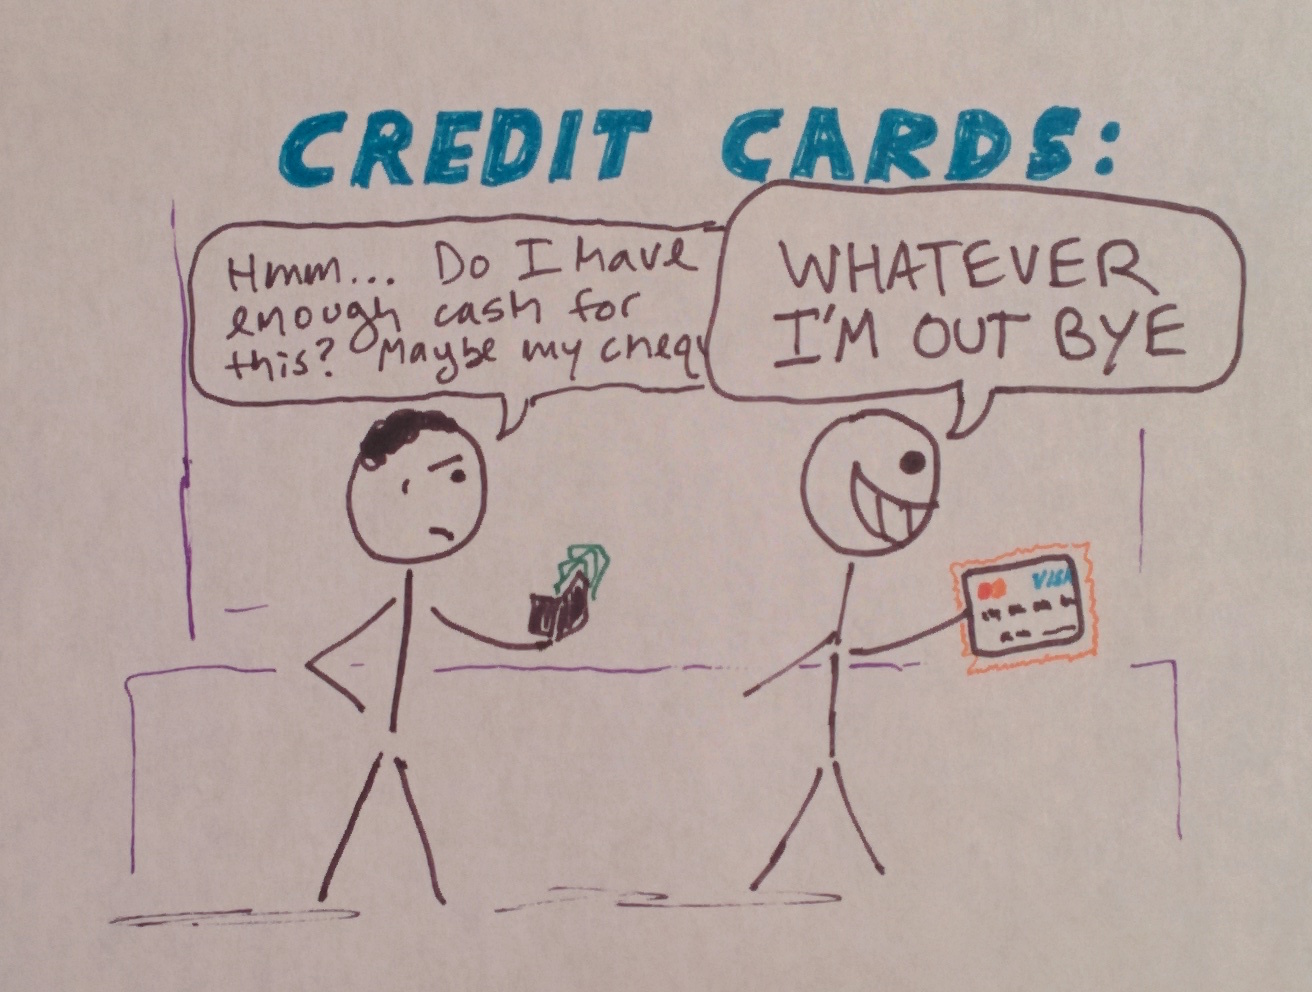 CREDIT CARDS:
Hmm... Do I have
enough cash for
this? Maybe my chequ
WHATEVER
I'M OUT BYE
VISA